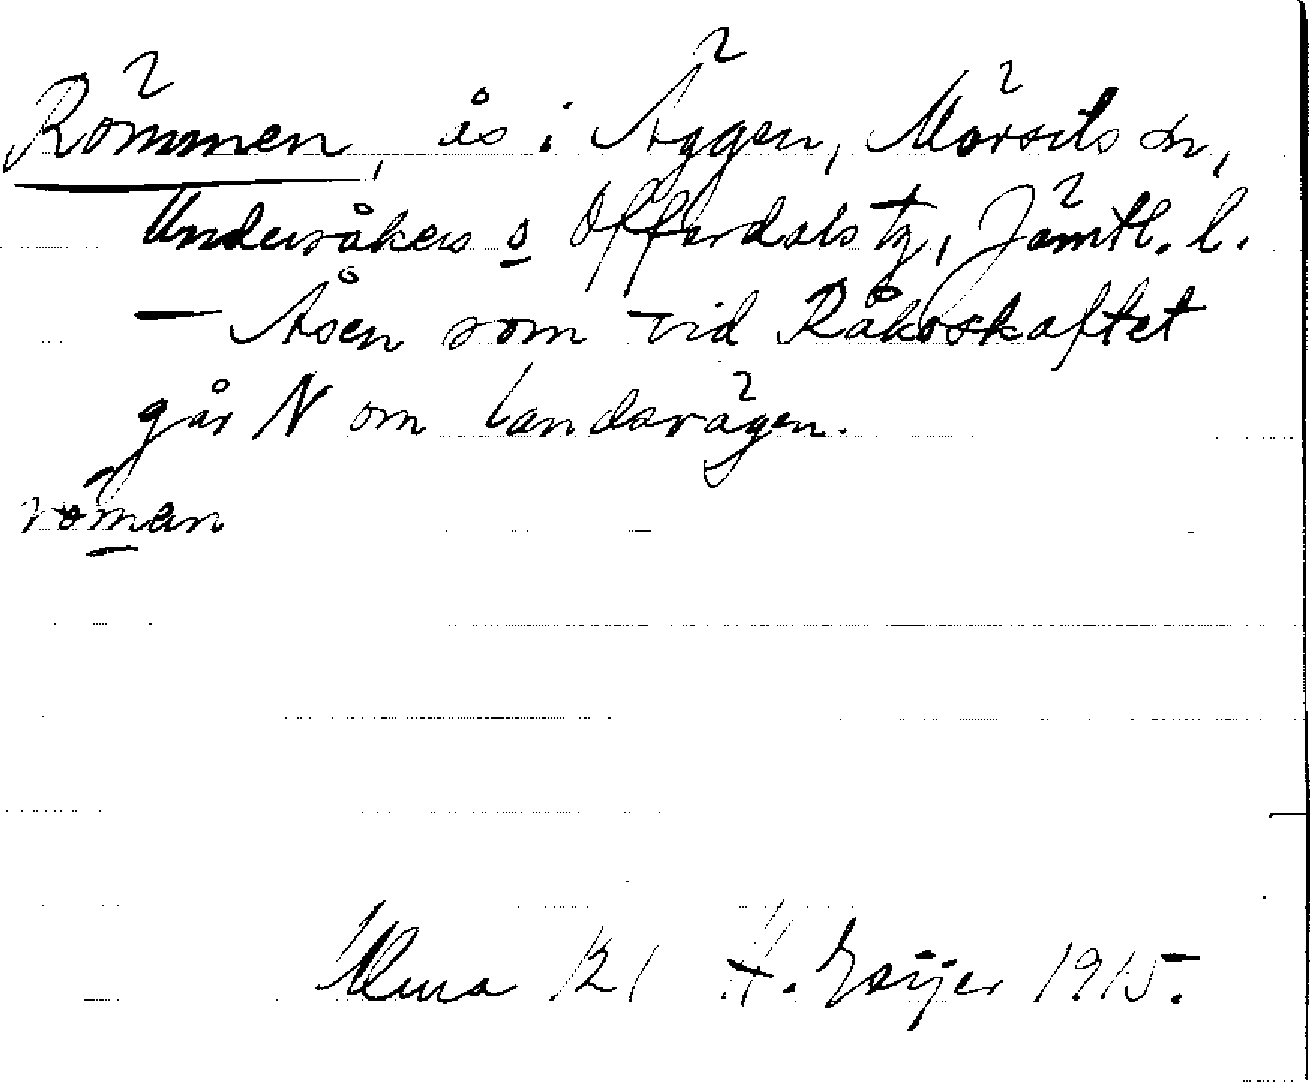 Römmen, ås i Äggen, Mörsils sn,
Undersåkers o Offerdals tg, Jämtl. l.
— Åsen som vid Råkoskaftet
går N om landsvägen.
röman
Ulma 121 H. Geijer 1915.